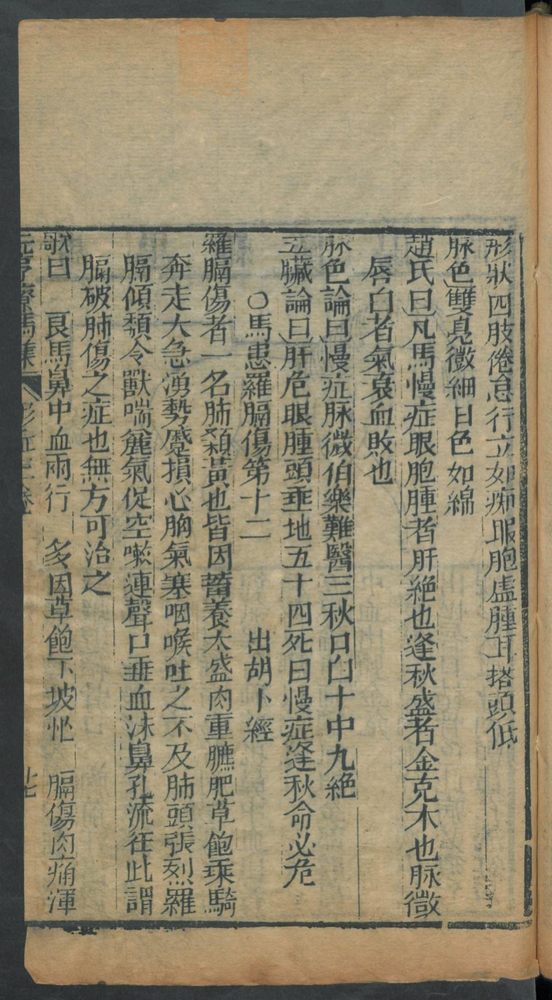 形狀四肢倦怠行立如痴眼胞虛腫耳搭頭低
脉色雙鳧微細日色如綿
趙氏曰凡馬慢症眼胞腫者肝絶也逢秋盛者金克木也脉微
唇白者氣衰血敗也
脉色論曰慢症脉微伯樂難醫三秋口白十中九絶
五臟論曰肝危眼腫頭垂地五十四死曰慢症逢秋命必危
○馬患羅膈傷第十二 出胡卜經
羅膈傷者一名肺顙黃也皆因蓄養太盛肉重膘肥草飽乘騎
奔走大急湧勢蹙損心胸氣塞咽喉吐之不及肺頭張烈羅
膈傾頽令獸喘麄氣促空嗽連聲口垂血沫鼻孔流徃此謂
膈破肺傷之症也無方可治之
歌曰 良馬鼻中血兩行 多因草飽下坡忙 膈傷肉痛渾
元亨療馬集
十七